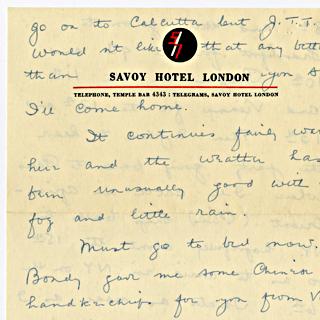 go on to Calcutta but J. T. T.
would n't like that at any bette
than
SAVOY HOTEL LONDON
TELEPHONE, TEMPLE BAR 4343 : TELEGRAMS, SAVOY HOTEL LONDON
I'll come home.
It continues fairly war
here and the weather has
been unusually good with
fog and little rain.
Must go to bed now.
Bondy gave me some Chinese
handkerchiefs for you from